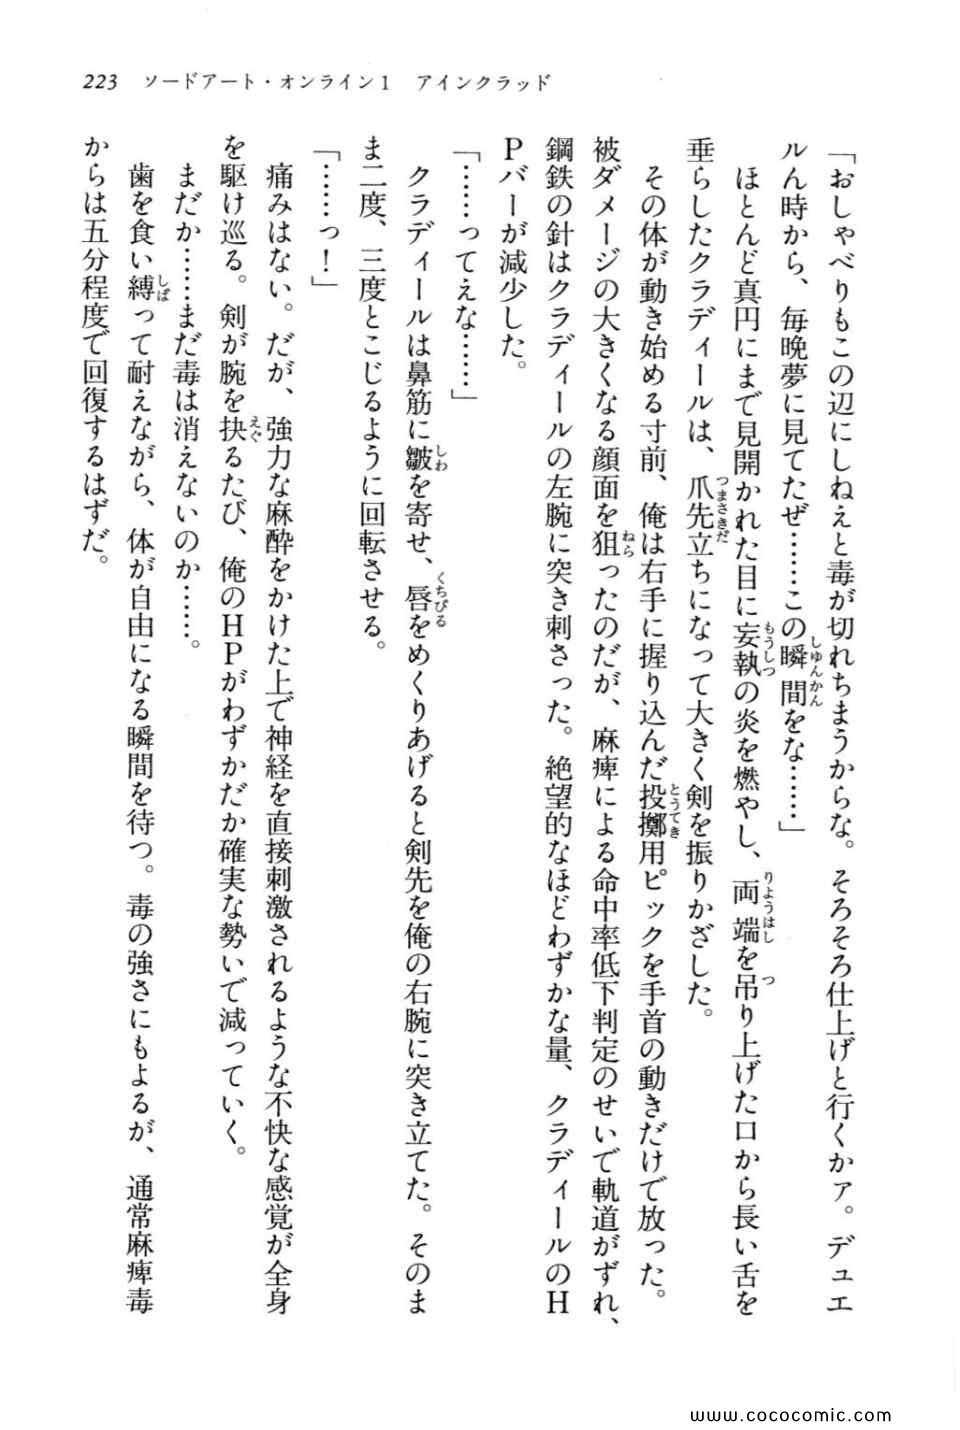 223　ソードアート・オンライン1　アインクラッド
「おしゃべりもこの辺にしねえと毒が切れちまうからな。そろそろ仕上げと行くかァ。デュエ
ルん時から、毎晩夢に見てたぜ……この瞬間をな……」
ほとんど真円にまで見開かれた目に妄執の炎を燃やし、両端を吊り上げた口から長い舌を
垂らしたクラディールは、爪先立ちになって大きく剣を振りかざした。
その体が動き始める寸前、俺は右手に握り込んだ投擲用ピックを手首の動きだけで放った。
被ダメージの大きくなる顔面を狙ったのだが、麻痺による命中率低下判定のせいで軌道がずれ、
鋼鉄の針はクラディールの左腕に突き刺さった。絶望的なほどわずかな量、クラディールのH
Pバーが減少した。
「……ってえな……」
クラディールは鼻筋に皺を寄せ、唇をめくりあげると剣先を俺の右腕に突き立てた。そのま
ま二度、三度とこじるように回転させる。
「……っ！」
痛みはない。だが、強力な麻酔をかけた上で神経を直接刺激されるような不快な感覚が全身
を駆け巡る。剣が腕を抉るたび、俺のHPがわずかだか確実な勢いで減っていく。
まだか……まだ毒は消えないのか……。
歯を食い縛って耐えながら、体が自由になる瞬間を待つ。毒の強さにもよるが、通常麻痺毒
からは五分程度で回復するはずだ。
www.cococomic.com